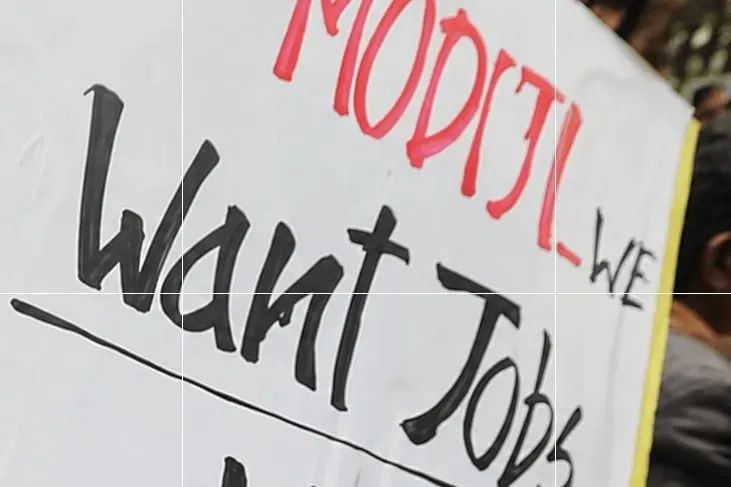 MODIJI WE
Want Jobs